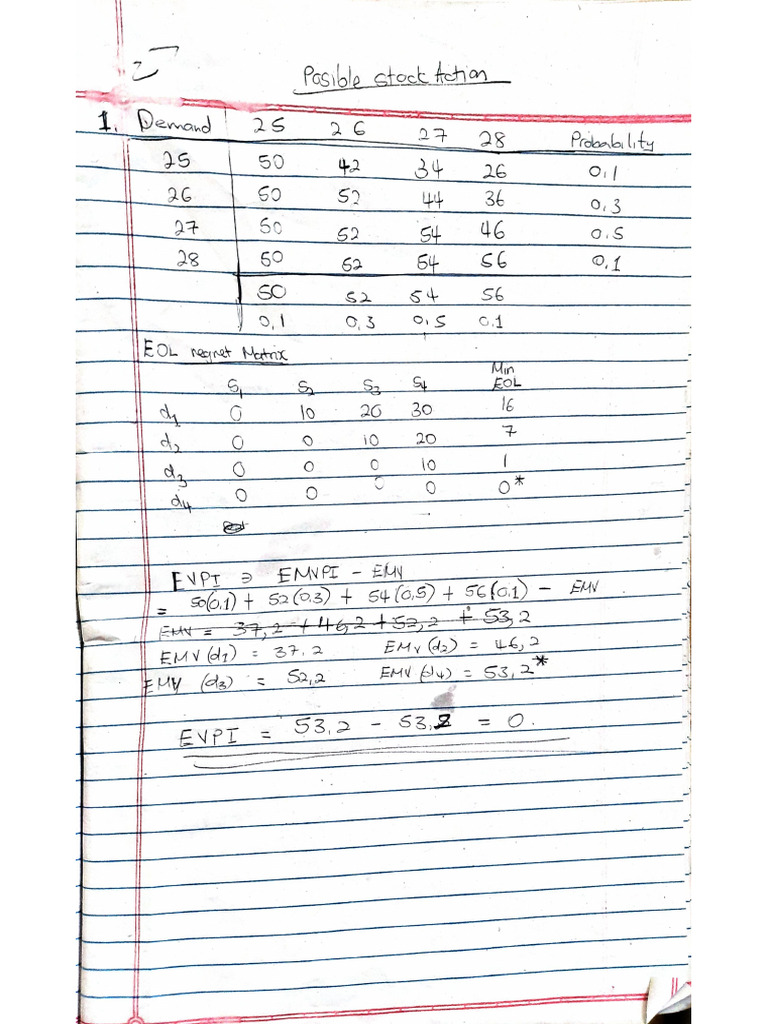 Posible stock Action
1. Demand 25 26 27 28 Probability
25 50 42 34 26 0,1
26 50 52 44 36 0,3
27 50 52 54 46 0,5
28 50 52 54 56 0,1
50 52 54 56
0,1 0,3 0,5 0,1
EOL regret Matrix
S1 S2 S3 S4 Min EOL
d1 0 10 20 30 16
d2 0 0 10 20 7
d3 0 0 0 10 1
d4 0 0 0 0 0*
EVPI = EMVPI - EMV
= 50(0,1) + 52(0,3) + 54(0,5) + 56(0,1) - EMV
EMV = 37,2 + 46,2 + 52,2 + 53,2
EMV(d1) = 37.2 EMV(d2) = 46,2
EMV (d3) = 52,2 EMV(d4) = 53,2*
EVPI = 53,2 - 53,2 = 0.